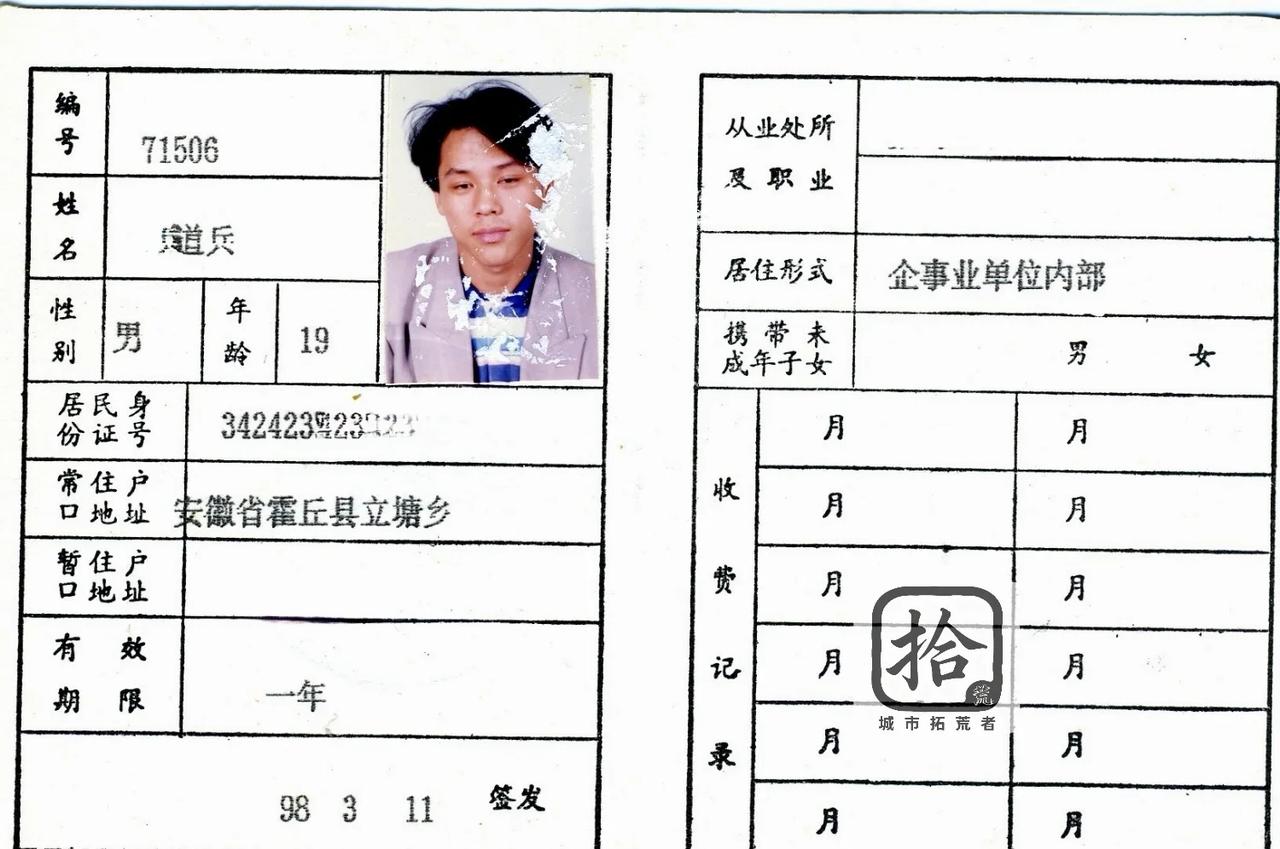 编号
71506
姓名
道兵
性别
男
年龄
19
居民身
份证号
342423
常住户
口地址
安徽省霍丘县立塘乡
暂住户
口地址
有效
期限
一年
98 3 11 签发
从业处所
及职业
居住形式
企事业单位内部
携带未
成年子女
男 女
收费记录
月 月
月 月
月 月
月 月
月 月
月 月
拾
荒
城市拓荒者